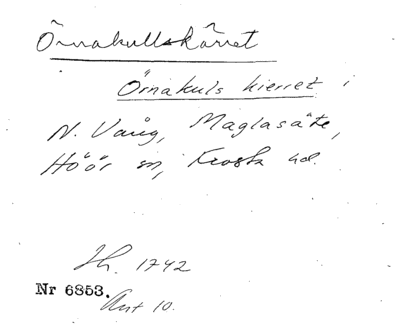 Örnakullskärret
Örnakuls kierret i
N. Vång, Maglasäte,
Höör sn, Frosta hd.
Lh. 1742
Nr 6853.
Akt 10.